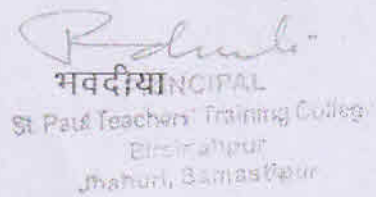 भवदीया
PRINCIPAL
St. Paul Teachers' Training College
Birsinghpur
Jhahuri, Samastipur